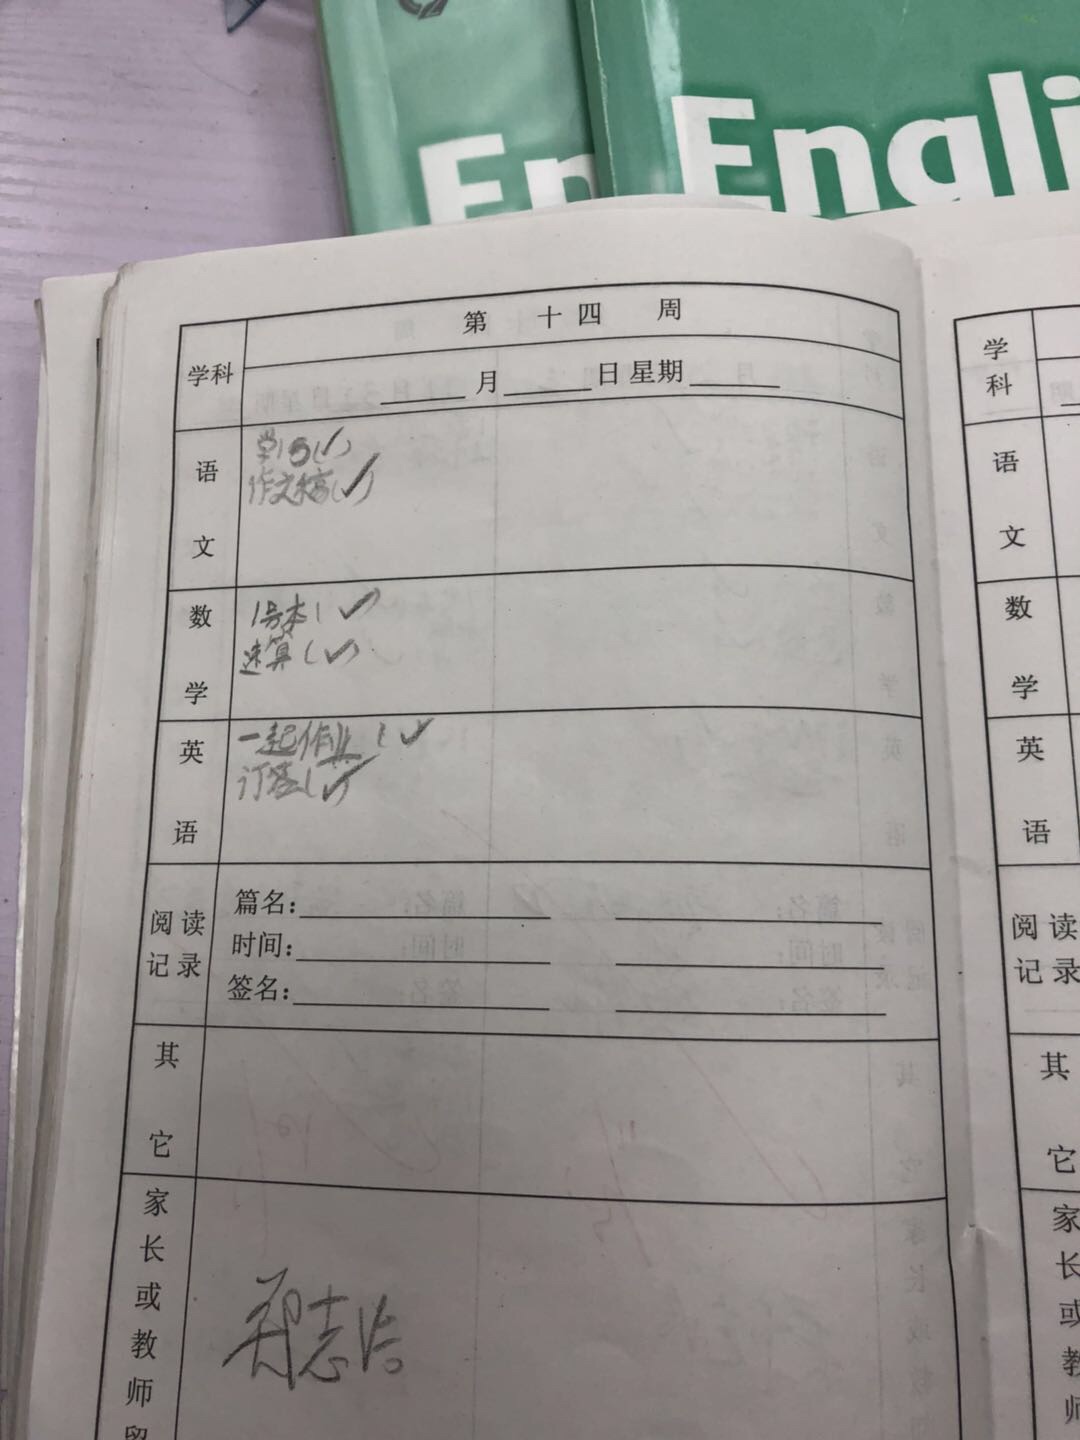 En
Engli
第 十四 周
学科
月 日 星期
语文
作文稿(✓)
数学
1号本(✓)
速算(✓)
英语
一起作业(✓)
阅读记录
篇名:
时间:
签名:
其它
家长或教师留
学科
语文
数学
英语
阅读记录
其它
家长或教师